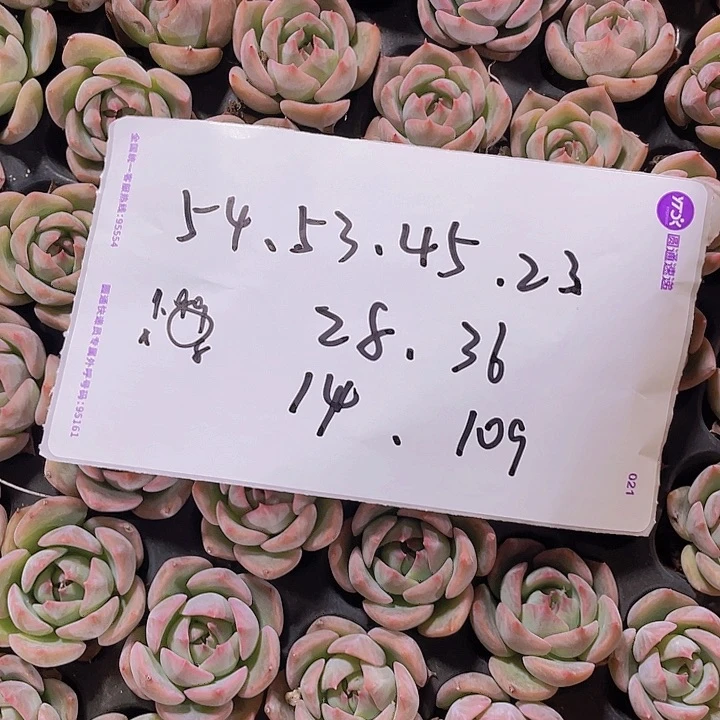 54.53.45.23
28.36
14.109
YTO
圆通速递
全国统一客服热线:95554
圆通快递员专属外呼号码:95161
021